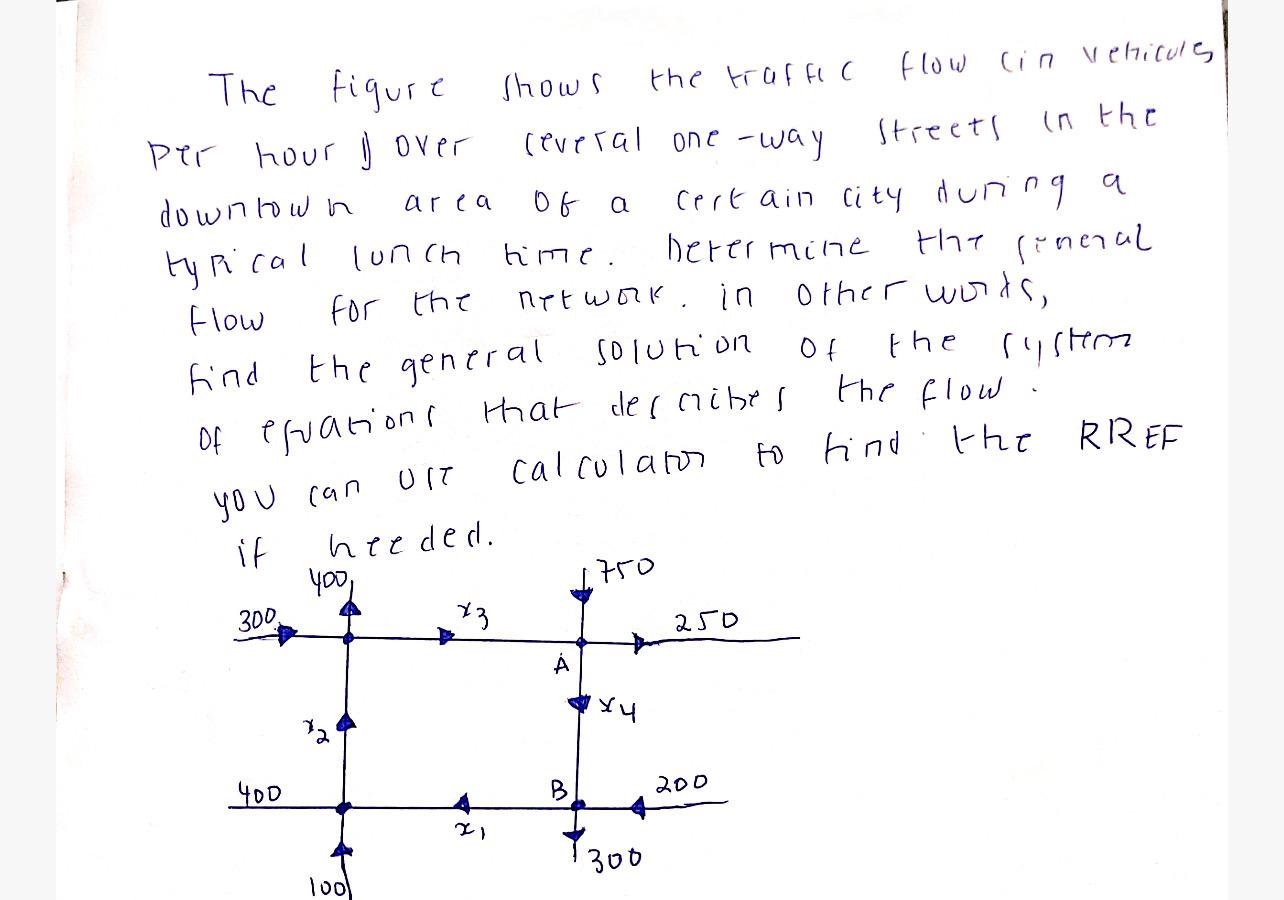 The figure shows the traffic flow (in vehicules
per hour) over several one-way streets in the
downtown area of a certain city during a
typical lunch time. Determine the general
flow for the network. in other words,
find the general solution of the system
of equations that describes the flow.
you can use calculator to find the RREF
if needed.
400
750
300
x3
250
A
x2
x4
400
B
200
x1
300
100